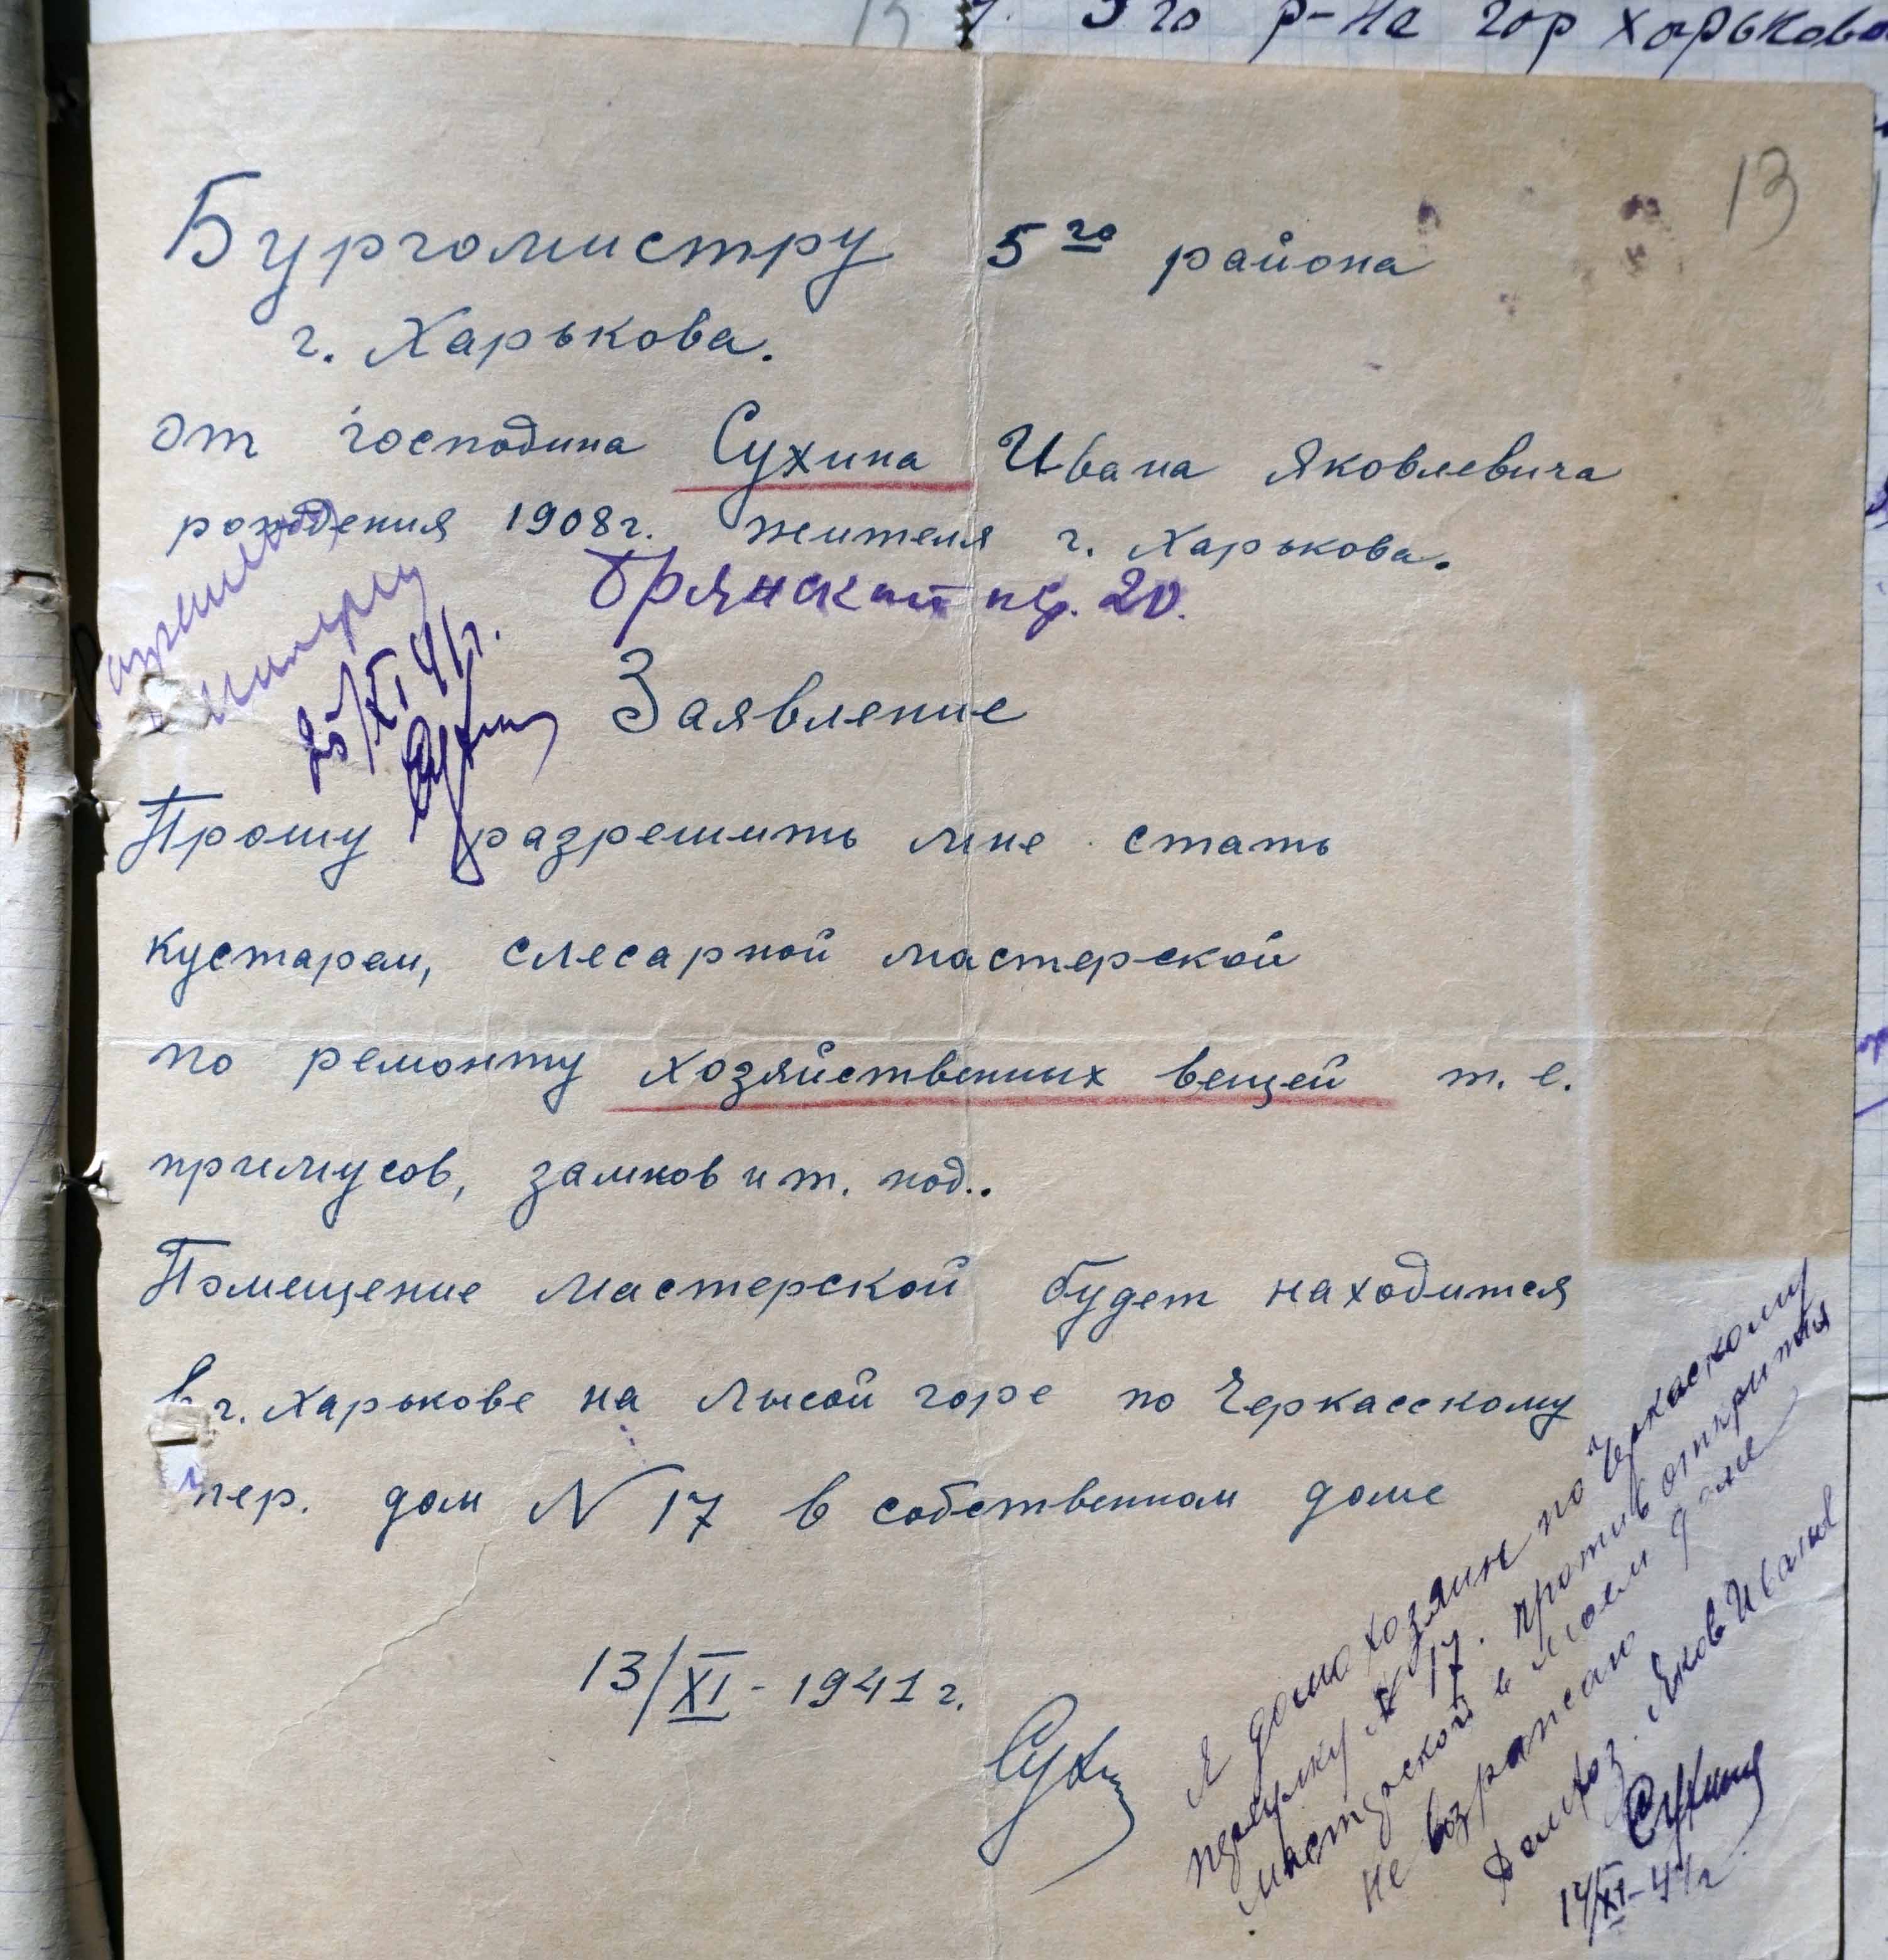 5го р-на гор Харькова
13
Бургомистру 5го района
г. Харькова.
от господина Сухина Ивана Яковлевича
рождения 1908г. жителя г. Харькова.
Брянский пер. 20.
25/XI 41г.
Заявление
Прошу разрешить мне стать
кустарем, слесарной мастерской
по ремонту хозяйственных вещей т. е.
примусов, замков и т. под..
Помещение мастерской будет находится
в г. Харькове на Лысой горе по Черкасскому
пер. дом N 17 в собственном доме
13/XI - 1941 г.
Сухин
Я домохозяин по Черкаскому
переулку N 17. против открития
мастерской в моем доме
не возражаю
Домхоз. Яков Иванов
Сухина
14/XI-41г.